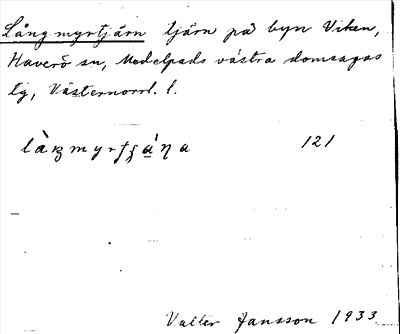 Långmyrtjärn tjärn på byn Viken,
Haverö sn, Medelpads västra domsagas
lg, Västernorrl. l.
121
Valter Jansson 1933